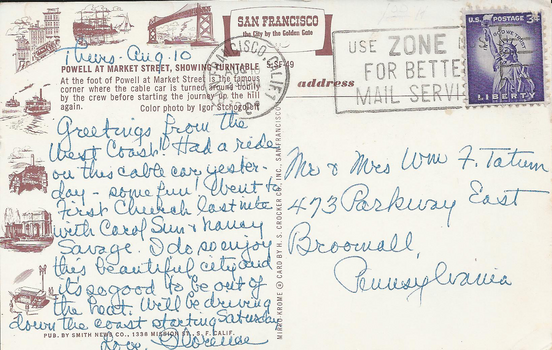 SAN FRANCISCO
the City by the Golden Gate
Thurs. Aug. 10
POWELL AT MARKET STREET, SHOWING TURNTABLE
S-SF-49
At the foot of Powell at Market Street is the famous
corner where the cable car is turned around bodily
by the crew before starting the journey up the hill
again.
Color photo by Igor
Greetings from the
West Coast! Had a ride
on this cable car yester-
day - some fun! Went to
First Church last nite
with Carol Sun & Nancy
Savage. I do so enjoy
this beautiful city and
it's so good to be out of
the heat. We'll be driving
down the coast starting Saturday
Love, Florence
PUB. BY SMITH NEWS CO., 1336 MISSION ST., S. F. CALIF.
MIRRO-KROME CARD BY H. S. CROCKER CO., INC., SAN FRANCISCO
address
USE ZONE
FOR BETTE
MAIL SERVI
U.S. POSTAGE 3¢
IN GOD WE TRUST
LIBERTY
Mr & Mrs Wm F. Tatum
473 Parkway East
Broomall,
Pennsylvania